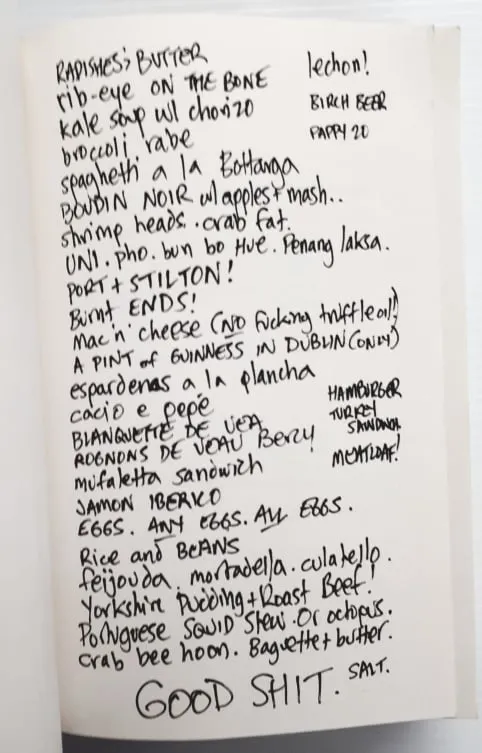 RADISHES & BUTTER
rib-eye ON THE BONE
kale soup w/ chorizo
broccoli rabe
spaghetti a la Bottarga
BOUDIN NOIR w/ apples + mash..
shrimp heads. crab fat.
UNI. pho. bun bo Hue. Penang laksa.
PORT + STILTON!
Burnt ENDS!
Mac 'n' cheese (NO fucking truffle oil!)
A PINT of GUINNESS IN DUBLIN (ONLY)
espardenas a la plancha
cacio e pepe
BLANQUETTE DE VEA
ROGNONS DE VEAU Bercy!
mufaletta sandwich
JAMON IBERICO
EGGS. ANY EGGS. ALL EGGS.
Rice and BEANS
feijouda. mortadella. culatello.
Yorkshire Pudding + Roast Beef!
Portuguese SQUID Stew. Or octopus.
crab bee hoon. Baguette + butter.
SALT.
GOOD SHIT.
lechon!
BIRCH BEER
PAPPY 20
HAMBURGER
TURKEY
SANDWICH
MEATLOAF!